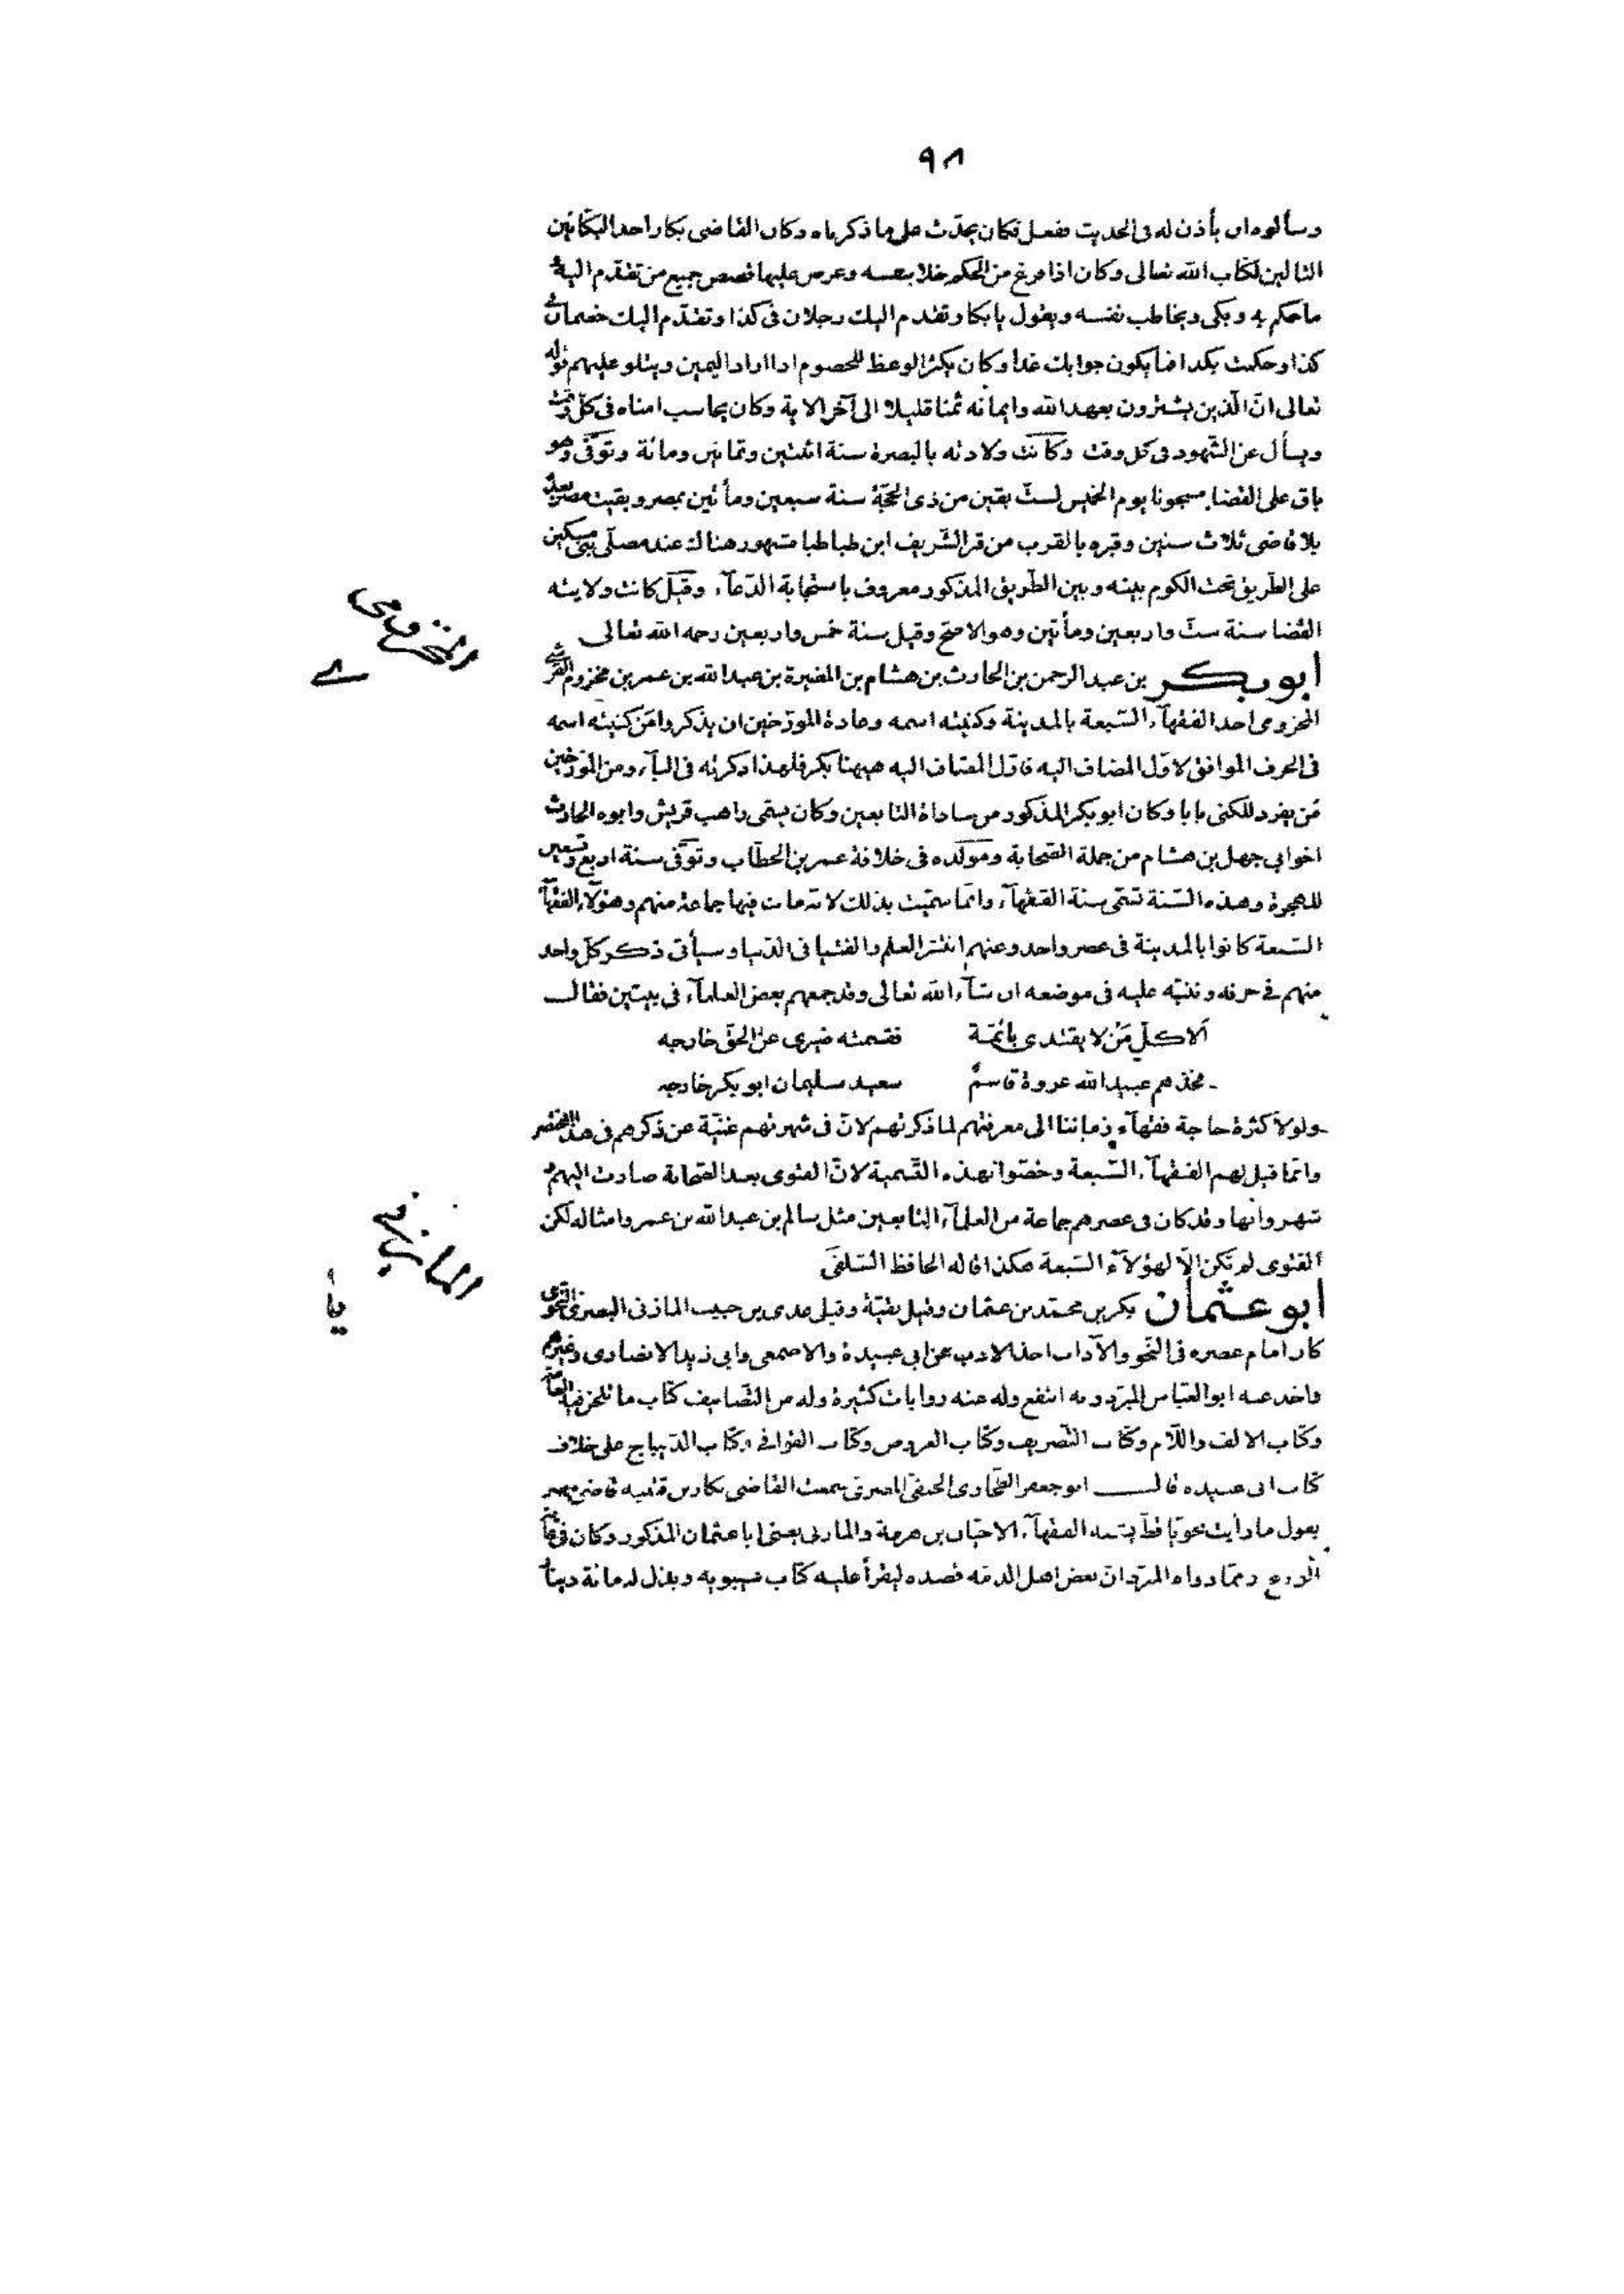 ٩٨
وسألوه ان يأذن له فى الحديث ففعل فكان يحدّث على ما ذكرناه وكان القاضى بكار احد البكّائين
التالين لكتاب الله تعالى وكان اذا فرغ من الحكم خلا بنفسه وعرض عليها قصص جميع من تقدّم اليه
ما حكم به وبكى ويخاطب نفسه ويقول يا بكار تقدم اليك رجلان فى كذا وتقدّم اليك خصمان فى
كذا وحكمت بكذا فما يكون جوابك غدا وكان يكثر الوعظ للخصوم اذا اراد اليمين ويتلو عليهم قوله
تعالى انّ الّذين يشترون بعهد الله وايمانه ثمنا قليلا الى آخر الاية وكان يحاسب امناه فى كلّ وقت
ويسأل عن الشّهود فى كل وقت وكانت ولادته بالبصرة سنة اثنتين وثمانين ومائة وتوفّى وهو
باق على القضا مسجونا يوم الخميس لستّ بقين من ذى الحجّة سنة سبعين ومأتين بمصر وبقيت مصر بعده
بلا قاضى ثلاث سنين وقبره بالقرب من قبر الشّريف ابن طباطبا مشهور هنالك عند مصلّى بنى مسكين
على الطّريق تحت الكوم بينه وبين الطّريق المذكور معروف باستجابة الدّعآء وقيل كانت ولايته
القضا سنة ستّ واربعين ومأتين وهو الاصحّ وقيل سنة خمس واربعين رحمه الله تعالى
المخزومى
ابو بكر بن عبد الرحمن بن الحارث بن هشام بن المغيرة بن عبد الله بن عمر بن مخزوم القرشى
المخزومى احد الفقهآء السّبعة بالمدينة وكنيته اسمه وعادة المورّخين ان يذكروا من كنيته اسمه
فى الحرف الموافق لاوّل المضاف اليه فاوّل المضاف اليه هيهنا بكر فلهذا ذكرته فى البآء ومن المورّخين
مَن يفرد للكنى بابا وكان ابو بكر المذكور من ساداة التابعين وكان يسمّى راهب قريش وابوه الحارث
اخو ابى جهل بن هشام من جملة الصّحابة ومولده فى خلافة عمر بن الخطّاب وتوفّى سنة اربع وتسعين
للهجرة وهذه السّنة تسمّى سنة الفقهآء وانّما سمّيت بذلك لانّه مات فيها جماعة منهم وهؤلآء الفقهآء
السّبعة كانوا بالمدينة فى عصر واحد وعنهم انتشر العلم والفتيا فى الدّنيا وسيأتى ذكر كلّ واحد
منهم فى حرفه وننبّه عليه فى موضعه ان شآء الله تعالى وقد جمعهم بعض العلمآء فى بيتين فقال
ألا كلّ مَنْ لا يقتدى بائمّة فقسمته ضيزى عن الحقّ خارجه
فخذهم عبيد الله عروة قاسمٌ سعيد سليمان ابو بكر خارجه
ولولا كثرة حاجة فقهآء زماننا الى معرفتهم لما ذكرتهم لانّ فى شهرتهم غنيّة عن ذكرهم فى هذا المختصر
وانّما قيل لهم الفقهآء السّبعة وخصّوا بهذه التّسمية لانّ الفتوى بعد الصّحابة صارت اليهم
شهروا بها وقد كان فى عصرهم جماعة من العلمآء التابعين مثل سالم بن عبد الله بن عمر وامثاله لكن
الفتوى لم تكن إلاّ لهؤلآء السّبعة هكذا قاله الحافظ السّلفى
المازنى
ابو عثمان بكر بن محمّد بن عثمان وقيل بقيّة وقيل عدى بن حبيب المازنى البصرى النحوى
كان امام عصره فى النّحو والآداب اخذ الادب عن ابى عبيدة والاصمعى وابى زيد الانصارى وغيرهم
واخذ عنه ابو العبّاس المبرّد وبه انتفع وله عنه روايات كثيرة وله من التّصانيف كتاب ما تلحن فيه العامّة
وكتاب الالف واللّام وكتاب التّصريف وكتاب العروض وكتاب القوافى وكتاب الدّيباج على خلاف
كتاب ابى عبيده قال ابو جعفر الطّحاوى الحنفى المصرى سمعت القاضى بكار بن قتيبه قاضى مصر
يقول ما رأيت نحويّا قطّ يشبه الفقهآء الا حيّان بن هرمة والمازنى يعنى ابا عثمان المذكور وكان فى غاية
الورع وممّا رواه المبرّد انّ بعض اهل الذمّه قصده ليقرأ عليه كتاب سيبويه وبذل له مائة دينار